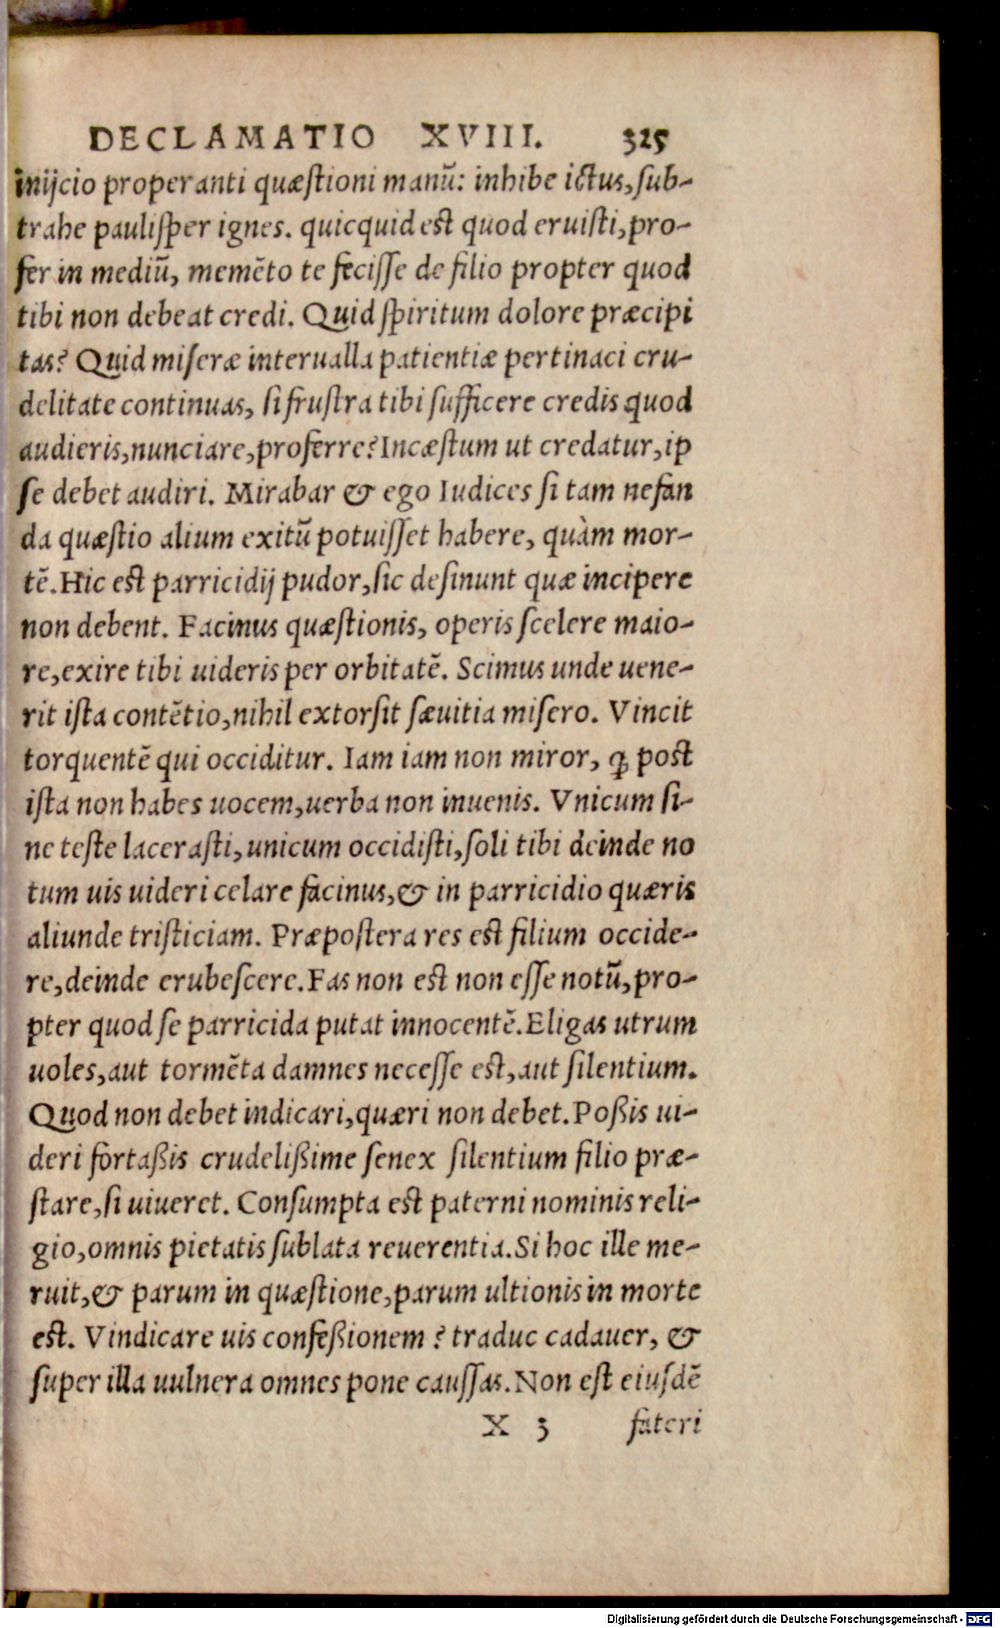 DECLAMATIO XVIII. 325
inijcio properanti quæstioni manū: inhibe ictus, sub-
trahe paulisper ignes. quicquid est quod eruisti, pro-
fer in mediū, memēto te fecisse de filio propter quod
tibi non debeat credi. Quid spiritum dolore præcipi
tas? Quid miseræ interualla patientiæ pertinaci cru-
delitate continuas, si frustra tibi sufficere credis quod
audieris, nunciare, proferre? Incæstum ut credatur, ip
se debet audiri. Mirabar & ego Iudices si tam nefan
da quæstio alium exitū potuisset habere, quàm mor-
tē. Hic est parricidij pudor, sic desinunt quæ incipere
non debent. Facinus quæstionis, operis scelere maio-
re, exire tibi uideris per orbitatē. Scimus unde uene-
rit ista contētio, nihil extorsit sæuitia misero. Vincit
torquentē qui occiditur. Iam iam non miror, ꝙ post
ista non habes uocem, uerba non inuenis. Vnicum si-
ne teste lacerasti, unicum occidisti, soli tibi deinde no
tum uis uideri celare facinus, & in parricidio quæris
aliunde tristiciam. Præpostera res est filium occide-
re, deinde erubescere. Fas non est non esse notū, pro-
pter quod se parricida putat innocentē. Eligas utrum
uoles, aut tormēta damnes necesse est, aut silentium.
Quod non debet indicari, quæri non debet. Poßis ui-
deri fortaßis crudelißime senex silentium filio præ-
stare, si uiueret. Consumpta est paterni nominis reli-
gio, omnis pietatis sublata reuerentia. Si hoc ille me-
ruit, & parum in quæstione, parum ultionis in morte
est. Vindicare uis confeßionem? traduc cadauer, &
super illa uulnera omnes pone caussas. Non est eiusdē
X 3 fateri
Digitalisierung gefördert durch die Deutsche Forschungsgemeinschaft - DFG